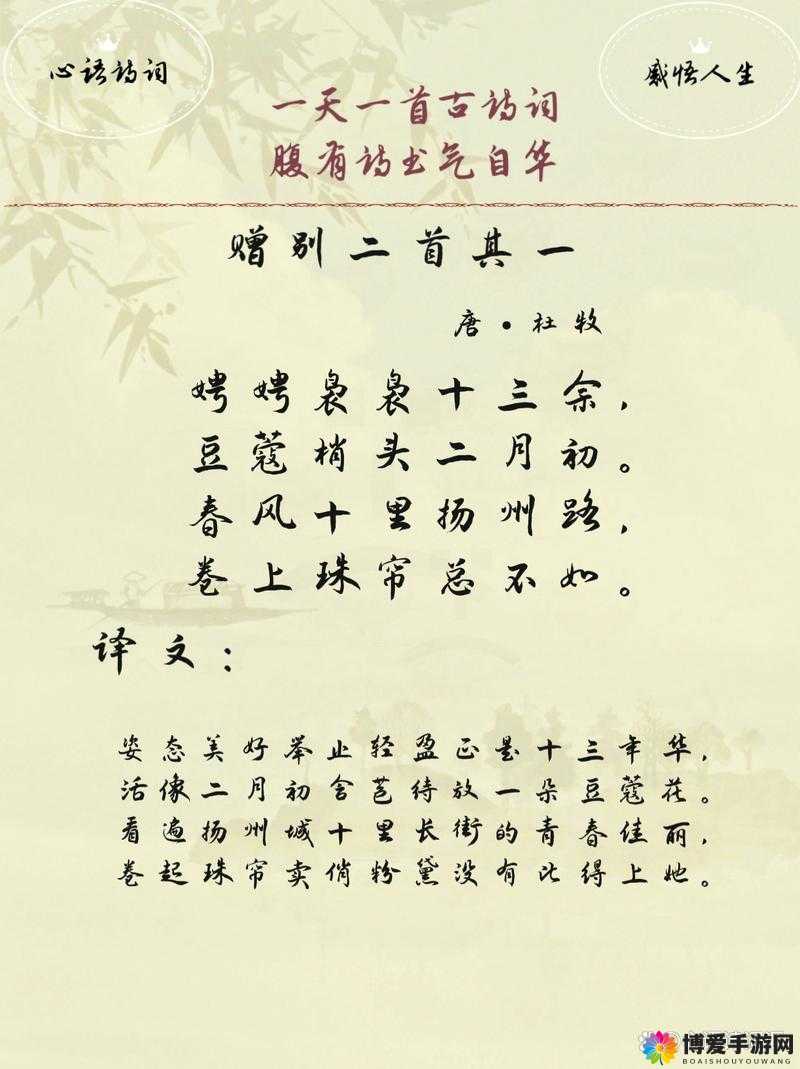 心语诗词
感悟人生
一天一首古诗词
腹有诗书气自华
赠别二首其一
唐·杜牧
娉娉袅袅十三余，
豆蔻梢头二月初。
春风十里扬州路，
卷上珠帘总不如。
译文：
姿态美好举止轻盈正是十三年华，
活像二月初含苞待放一朵豆蔻花。
看遍扬州城十里长街的青春佳丽，
卷起珠帘卖俏粉黛没有比得上她。
博爱手游网
BOAISHOUYOUWANG